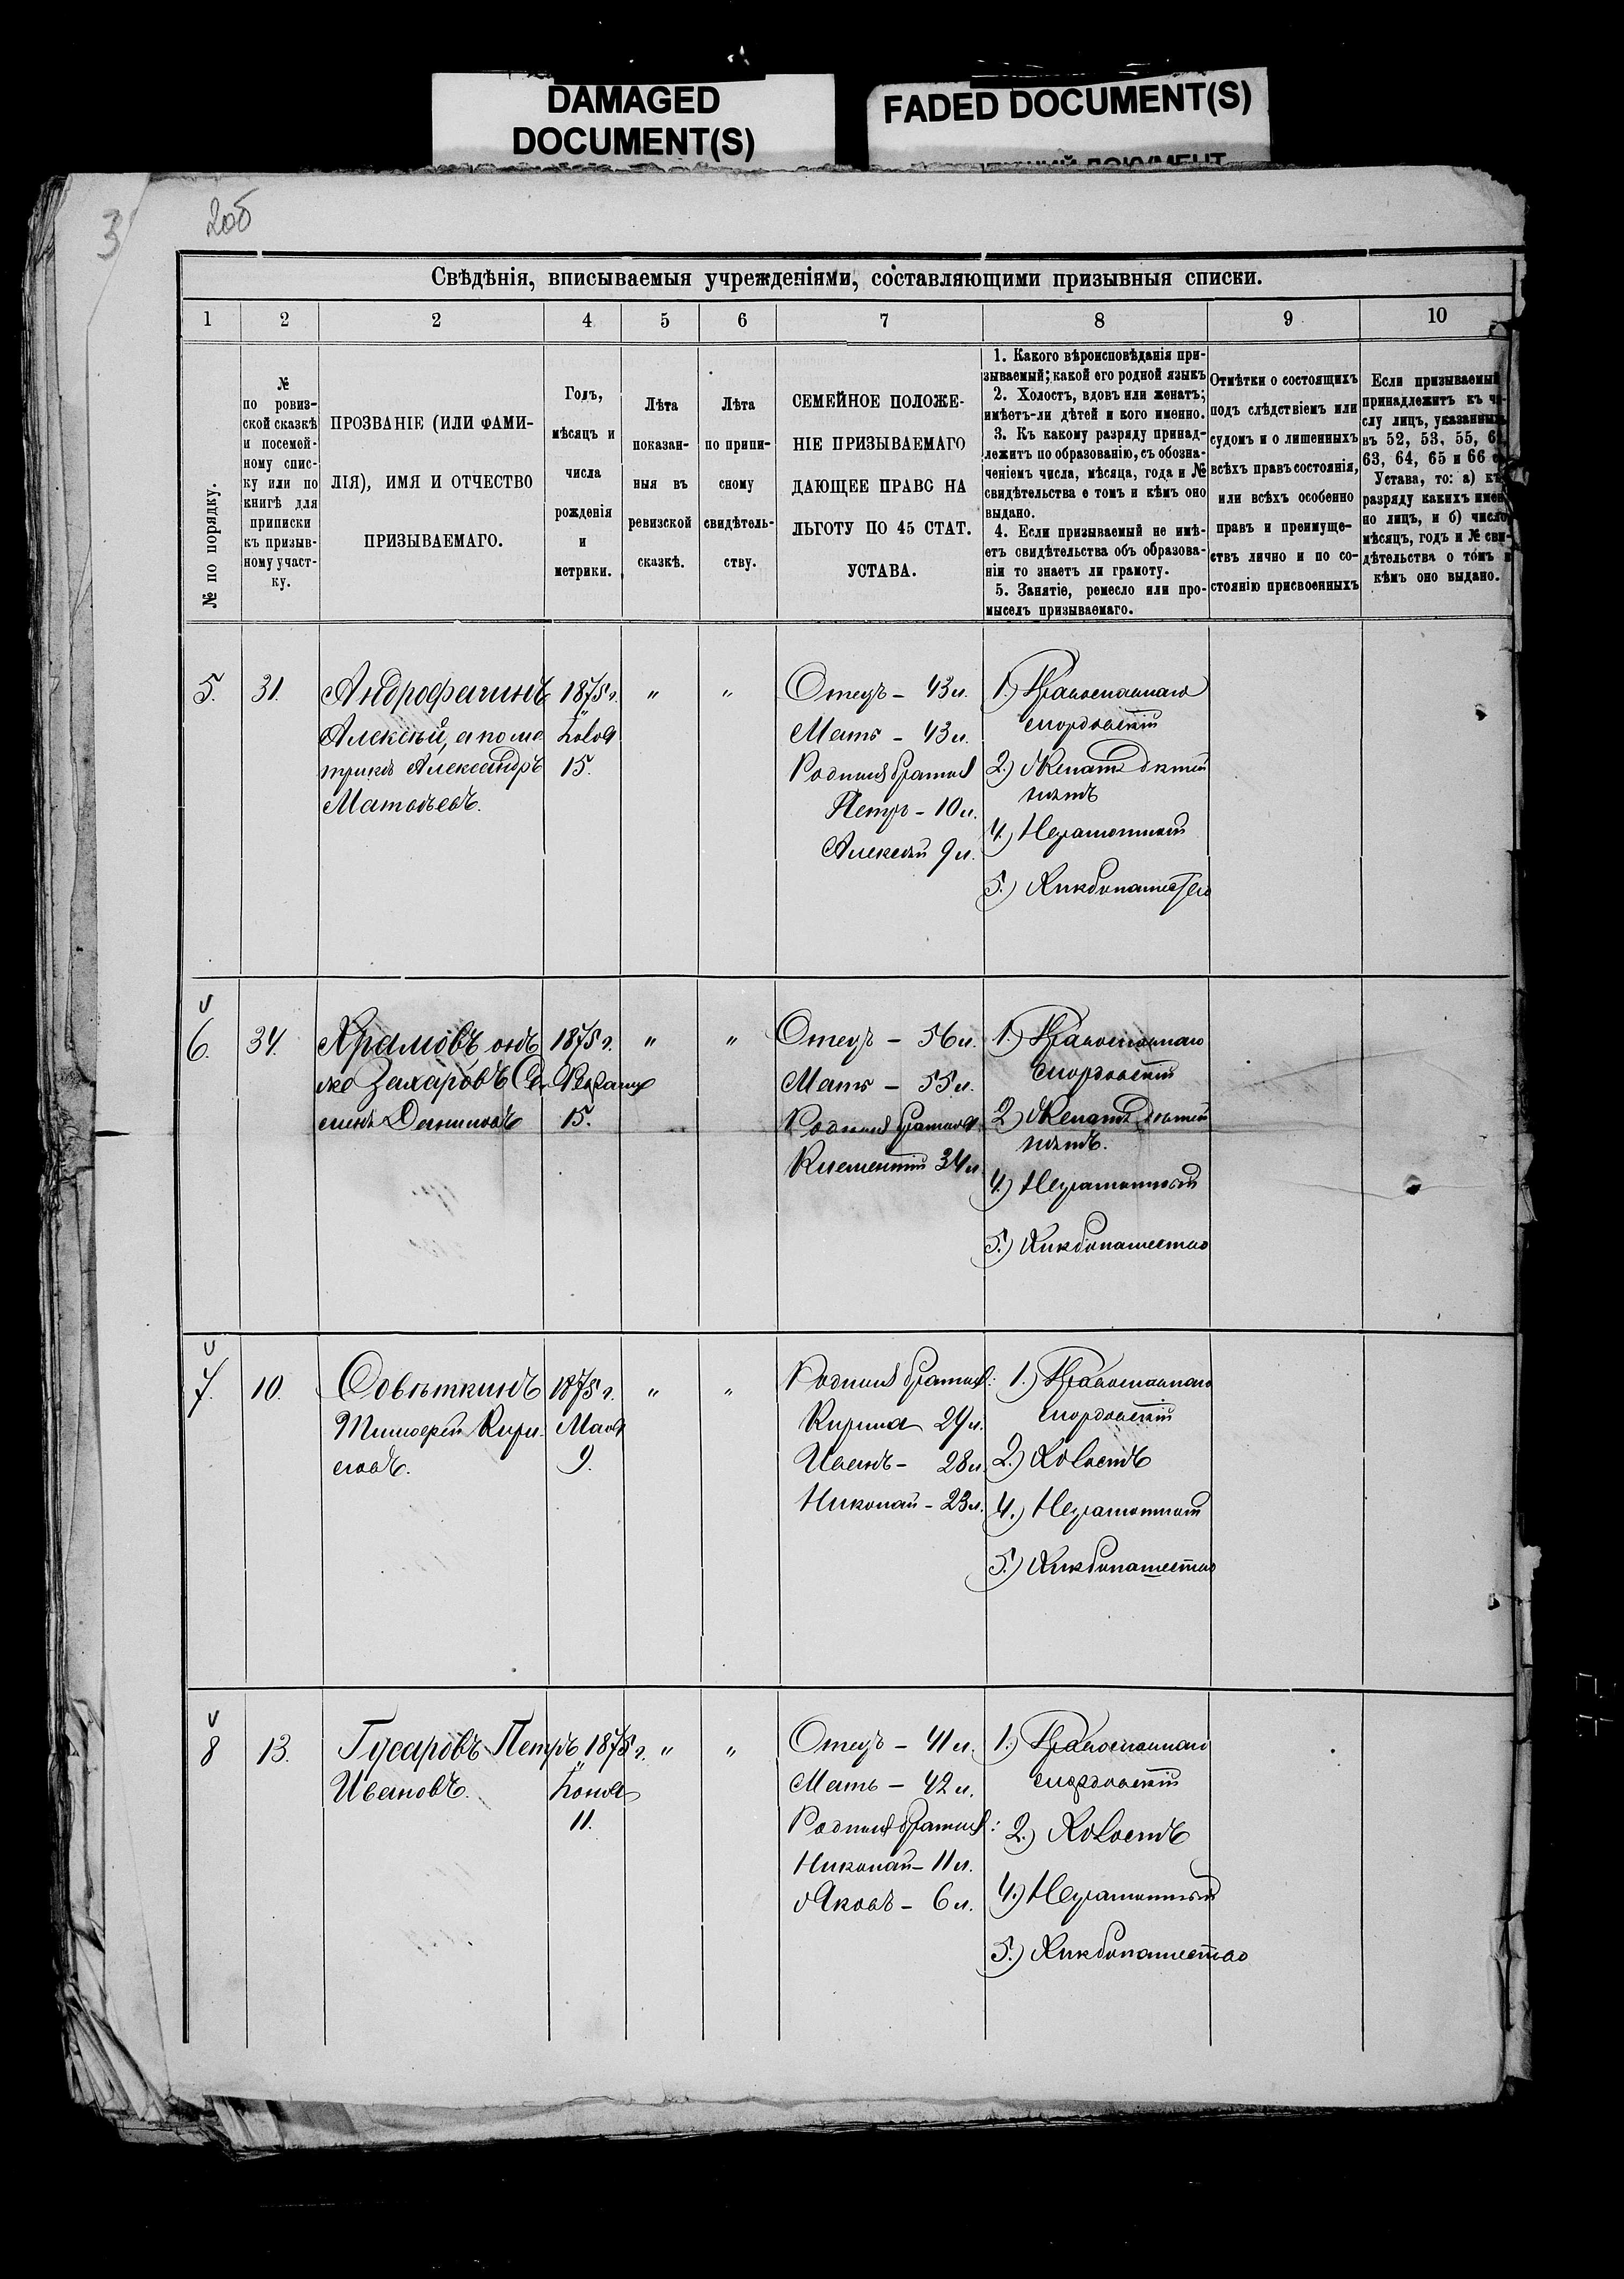 DAMAGED
DOCUMENT(S)
FADED DOCUMENT(S)
3
2об
Свѣдѣнія, вписываемыя учрежденіями, составляющими призывныя списки.
1 2 2 4 5 6 7 8 9 10
№ по порядку.
№
по ровиз-
ской сказкѣ
и посемей-
ному спис-
ку или по
книгѣ для
приписки
къ призыв-
ному участ-
ку.
ПРОЗВАНІЕ (ИЛИ ФАМИ-
ЛІЯ), ИМЯ И ОТЧЕСТВО
ПРИЗЫВАЕМАГО.
Годъ,
мѣсяцъ и
числа
рожденія
и
метрики.
Лѣта
показан-
ныя въ
ревизской
сказкѣ.
Лѣта
по припи-
сному
свидѣтель-
ству.
СЕМЕЙНОЕ ПОЛОЖЕ-
НІЕ ПРИЗЫВАЕМАГО
ДАЮЩЕЕ ПРАВО НА
ЛЬГОТУ ПО 45 СТАТ.
УСТАВА.
1. Какого вѣроисповѣданія при-
зываемый; какой его родной языкъ
2. Холостъ, вдовъ или женатъ;
имѣетъ-ли дѣтей и кого именно.
3. Къ какому разряду принад-
лежитъ по образованію, съ обозна-
ченіемъ числа, мѣсяца, года и №
свидѣтельства о томъ и кѣмъ оно
выдано.
4. Если призываемый не имѣ-
етъ свидѣтельства объ образова-
ніи то знаетъ ли грамоту.
5. Занятіе, ремесло или про-
мыселъ призываемаго.
Отмѣтки о состоящихъ
подъ слѣдствіемъ или
судомъ и о лишенныхъ
всѣхъ правъ состоянія,
или всѣхъ особенно
правъ и преимуще-
ствъ лично и по со-
стоянію присвоенныхъ
Если призываемый
принадлежитъ къ чи-
слу лицъ, указанныхъ
въ 52, 53, 55, 62,
63, 64, 65 и 66 с.
Устава, то: а) къ
разряду какихъ имен
но лицъ, и б) число
мѣсяцъ, годъ и № сви-
дѣтельства о томъ и
кѣмъ оно выдано.
5. 31.
Алексѣй, а по ме
трикѣ Александръ
Матвѣевъ.
1875 г.
15.
" "
Отецъ – 43 л.
Мать – 43 л.
Родныя братья
Петръ – 10 л.
Алексѣй 9 л.
1.) Православнаго
мордовскій
2.) Женатъ дѣтей
нѣтъ
4.) Неграмотный
5.) Хлѣбопашество
6. 34.
Храмовъ, онъ
же Захаровъ Се
менъ Даниловъ
1875 г.
Февраля
15.
" "
Отецъ – 56 л.
Мать – 55 л.
Родныя братья
Климентій 34 л.
1.) Православнаго
мордовскій
2.) Женатъ дѣтей
нѣтъ.
4.) Неграмотный
5.) Хлѣбопашество
7. 10.
Совѣткинъ
Тимофей Кири-
ловъ.
1875 г.
Маія
9.
" "
Родныя братья:
Кирила 29 л.
Иванъ – 28 л.
Николай – 23 л.
1.) Православнаго
мордовскій
2.) Холостъ
4.) Неграмотный
5.) Хлѣбопашество
8 13.
Гусаровъ Петръ
Ивановъ.
1875 г.
Іюня
11.
" "
Отецъ – 41 л.
Мать – 42 л.
Родныя братья:
Николай – 11 л.
Яковъ – 6 л.
1.) Православнаго
мордовскій
2.) Холостъ
4.) Неграмотный
5.) Хлѣбопашество